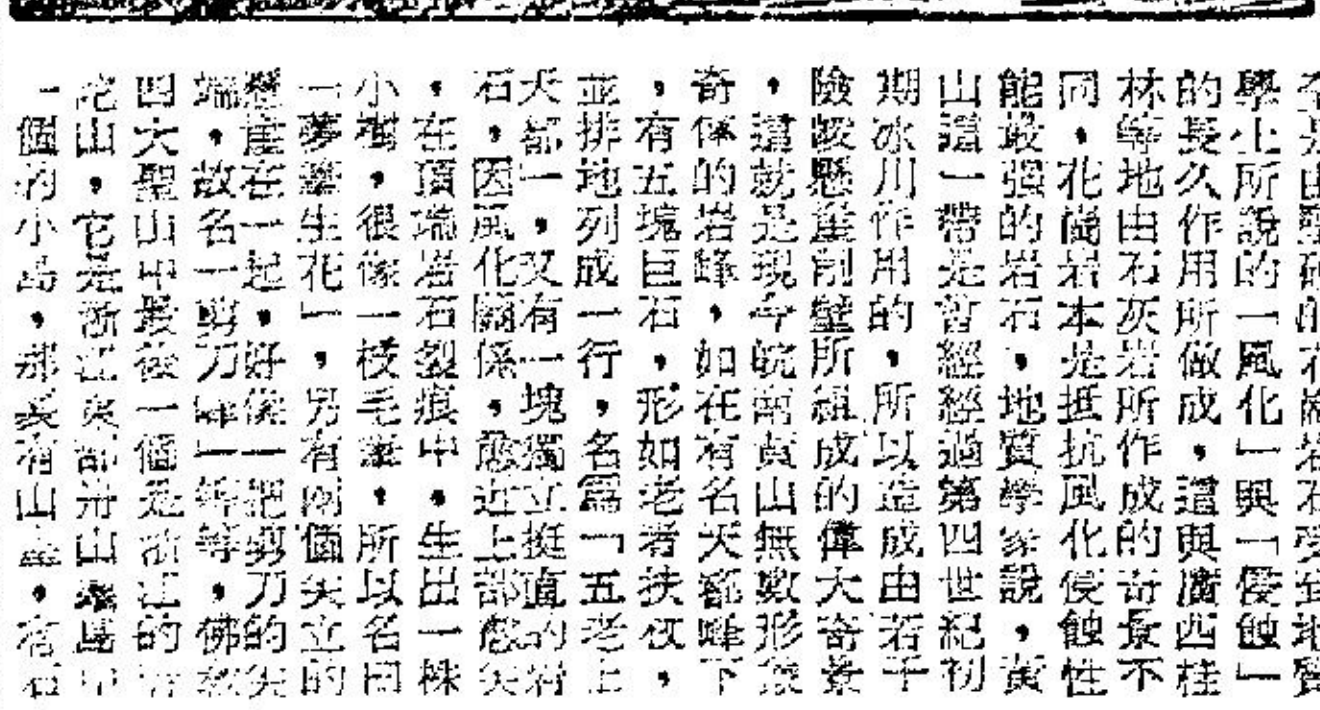 學上所說的「風化」與「侵蝕」
的長久作用所做成，這與廣西桂
林等地由石灰岩所作成的奇景不
同，花崗岩本是抵抗風化侵蝕性
能最强的岩石，地質學家說，黃
山這一帶是曾經經過第四世紀初
期冰川作用的，所以造成由若干
險峻懸崖削壁所組成的偉大奇景
，這就是現今皖南黃山無數形狀
奇偉的岩峰，如在有名天都峰下
，有五塊巨石，形如老者扶杖，
並排地列成一行，名爲「五老上
天都」，又有一塊獨立挺直的岩
石，因風化關係，近上部尖
，在頂端岩石裂痕中，生出一株
小樹，很像一枝毛筆，所以名曰
「夢筆生花」，另有兩個尖立的
懸崖在一起，好像一把剪刀的尖
端，故名「剪刀峰」等等，佛教
四大聖山中最後一個是浙江的普
陀山，它是浙江東部舟山羣島中
一個的小島，那有山，有石